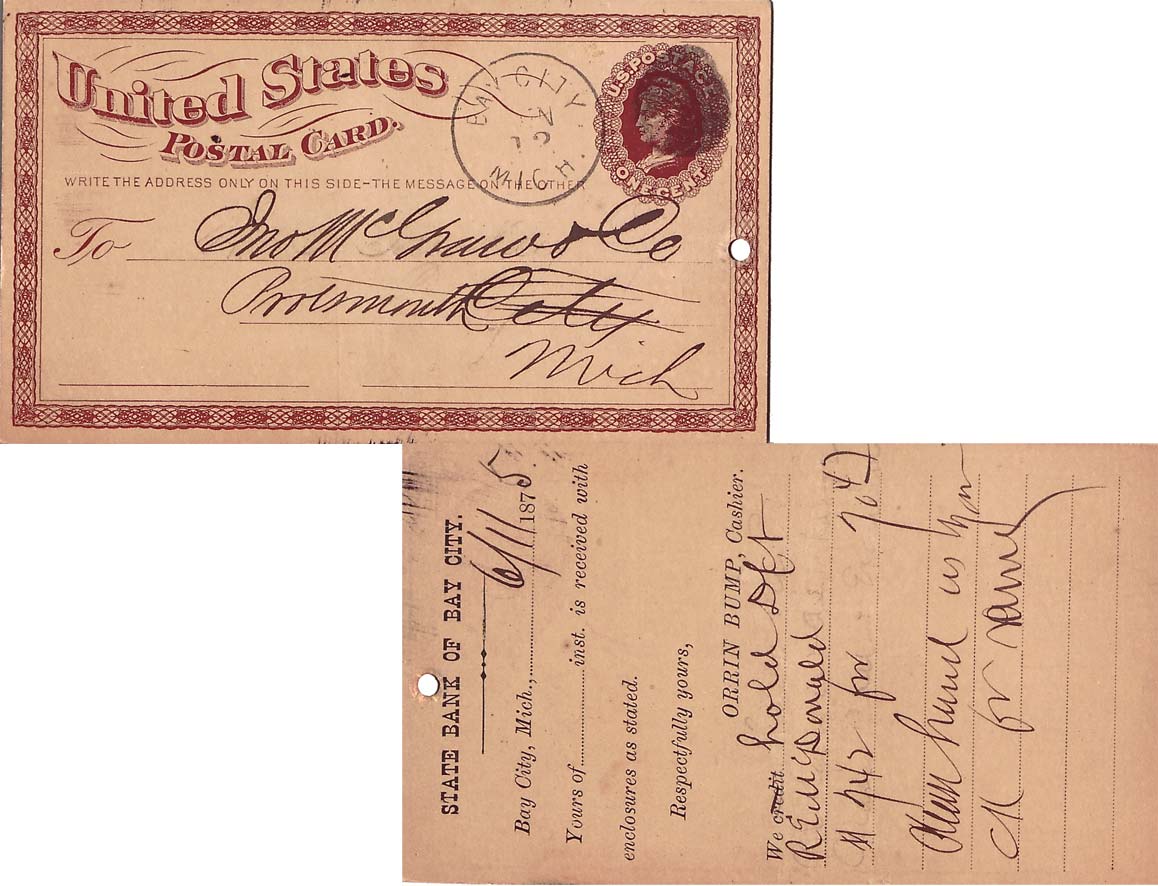 United States
POSTAL CARD.
WRITE THE ADDRESS ONLY ON THIS SIDE-THE MESSAGE ON THE OTHER
BAY CITY
MICH.
U.S. POSTAGE
ONE CENT
To Jno McGraw & Co
Portsmouth City
Mich
STATE BANK OF BAY CITY.
Bay City, Mich., 6/11 1875.
Yours of inst. is received with
enclosures as stated.
Respectfully yours,
ORRIN BUMP, Cashier.
We credit hold Dft
R E McDonald
# 742 for
Please hand us your
ck for same